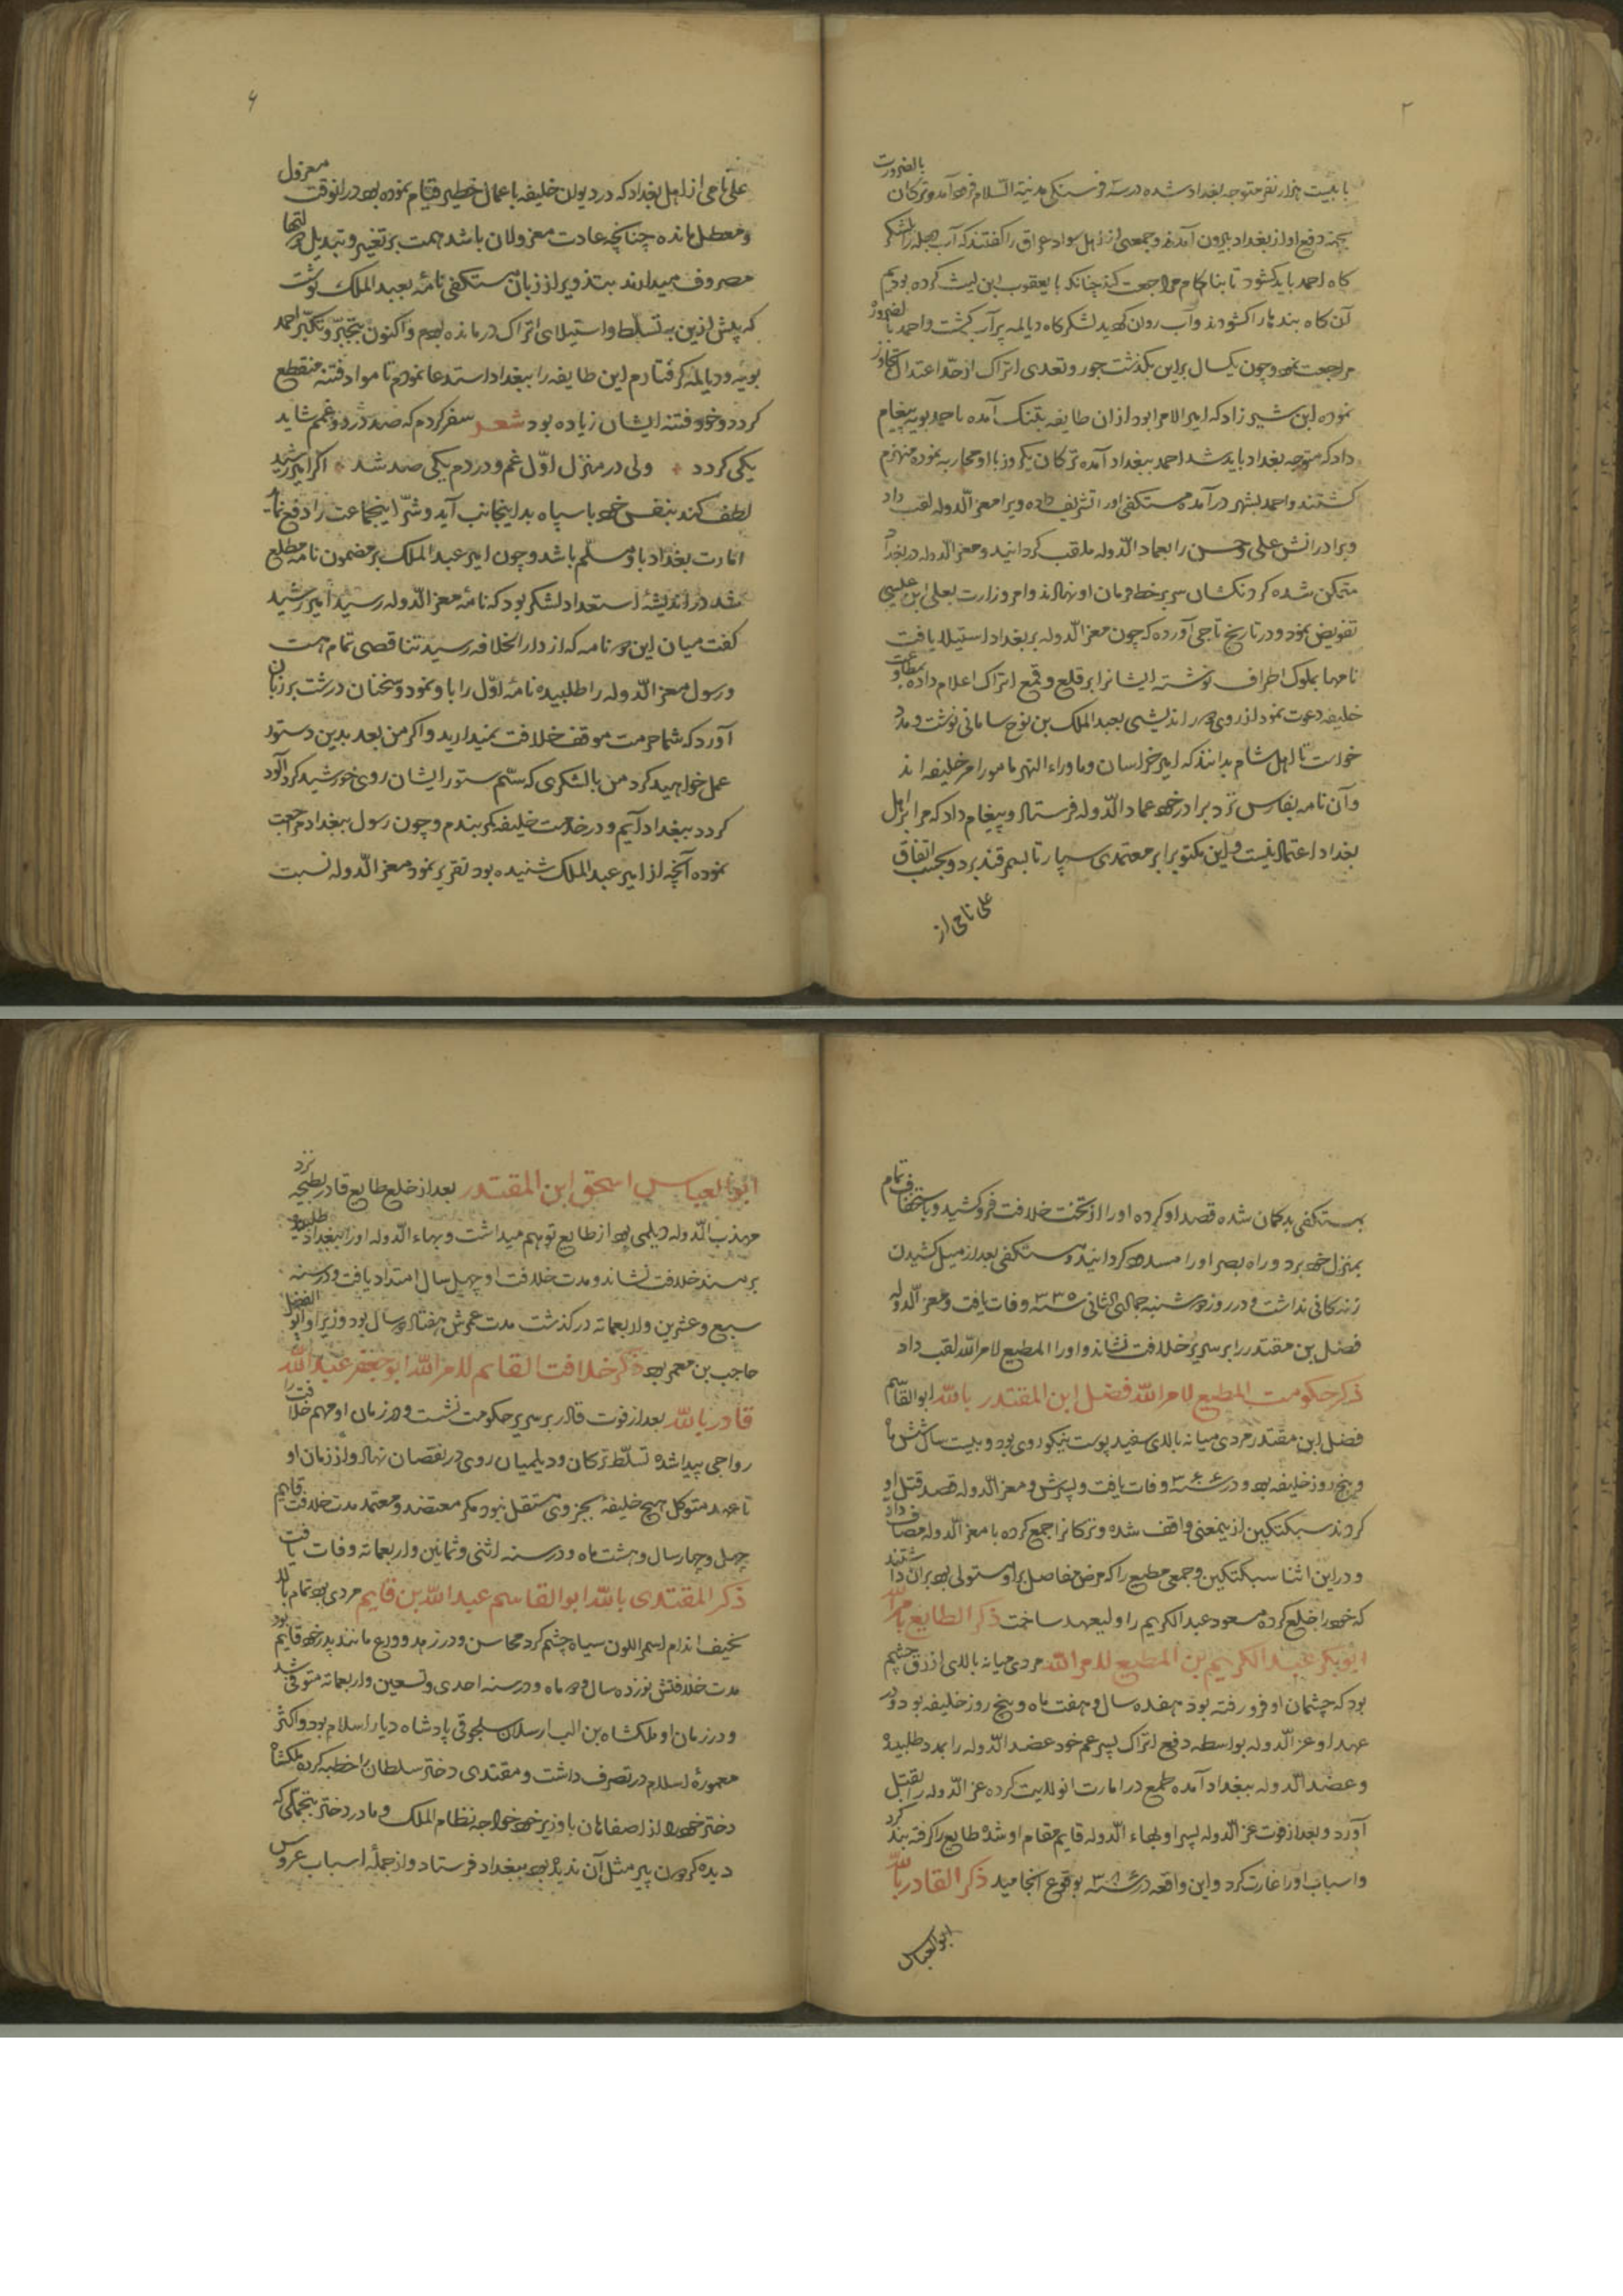 ۲
با بیست هزار نفر متوجه بغداد شده در سه فرسنکی مدینة السّلام فرود آمد و ترکان بالضرورت
بجهة دفع او از بغداد بیرون آمدند و جمعی از اهل سواد عراق را کفتند که آب دجله را بلشکر
کاه احمد باید کشود تا بناکام مراجعت کند چنانکه با یعقوب ابن لیث کرده بودیم
آن کاه بندها را کشودند و آب روان کردید لشکرکاه دیالمه پر آب کشت و احمد بالضرورة
مراجعت نمود و چون یکسال براین بکذشت جور و تعدی اتراک از حدّ اعتدال تجاوز
نموده ابن شیرزاد که امیر الامرا بود از ان طایفه بتنک آمده باحمد بویه پیغام
داد که متوجه بغداد باید شد احمد ببغداد آمده ترکان یکروز با او محاربه نموده منهزم
کشتند و احمد بشهر درآمده مستکفی او را تشریف داده ویرا معز الدوله لقب داد
و برادرانش علی و حسن را بعماد الدوله ملقب کردانید و معز الدوله در بغداد
متمکن شده کردنکشان سر بر خط فرمان او نهادند و امر وزارت بعلی ابن عیسی
تفویض نمود و در تاریخ تاجی آورده که چون معز الدوله بر بغداد استیلا یافت
نامها بملوک اطراف نوشته ایشانرا بر قلع و قمع اتراک اعلام داده بمطاوعت
خلیفه دعوت نمود از روی دور اندیشی بعبد الملک بن نوح سامانی نوشت و مدد
خواست تا اهل شام بدانند که امیر خراسان و ماوراء النهر مامور امر خلیفه اند
و آن نامه بفارس نزد برادر خود عماد الدوله فرستاد و پیغام داد که مرا بر اهل
بغداد اعتماد نیست و این مکتوب را بر معتمدی سپار تا بسمرقند برد و بحسب اتفاق
علی تاجی از
۶
علی تاجی از اهل بغداد که در دیوان خلیفه باعمال خطیر قیام نموده بود در انوقت معزول
و معطل مانده چنانکه عادت معزولان باشد همت بر تغییر و تبدیل دولتها
مصروف میدارند بتذویر از زبان مستکفی نامهٔ بعبد الملک نوشت
که پیش ازین به تسلط و استیلای اتراک درمانده بودم و اکنون بتجبّر و تکبّر احمد
بویه و دیالمه کرفتارم این طایفه را ببغداد استدعا نمودم تا مواد فتنه منقطع
کردد و خود فتنه ایشان زیاده بود شعر سفر کردم که صد درد و غمم شاید
یکی کردد * ولی در منزل اوّل غم و دردم یکی صد شد * اکر امیر رشید
لطف کند بنفس خود با سپاه بداینجانب آید و شرّ اینجماعت را دفع نماید
امارت بغداد باو مسلّم باشد و چون امیر عبد الملک بر مضمون نامه مطلع
شد در اندیشهٔ استعداد لشکر بود که نامهٔ معز الدوله رسید امیر رشید
کفت میان این دو نامه که از دار الخلافه رسید تناقصی تمام هست
و رسول معز الدوله را طلبیده نامهٔ اوّل را باو نمود و سخنان درشت بر زبان
آورد که شما حرمت موقف خلافت نمیدارید و اکر من بعد بدین دستور
عمل خواهید کرد من با لشکری که سّم ستور ایشان روی خورشید کرد آلود
کردد ببغداد آیم و در خدمت خلیفه کمر بندم و چون رسول ببغداد مراجعت
نموده آنچه از امیر عبد الملک شنیده بود تقریر نمود معز الدوله نسبت
بمستکفی بدکمان شده قصد او کرده او را از تخت خلافت فرو کشید و باستخفاف تمام
بمنزل خود برد و راه بصر او را مسدود کردانید و مستکفی بعد از میل کشیدن
زندکانی نداشت و در روز دوشنبه جمادی الثانی سنه ۳۳۵ وفات یافت و معز الدوله
فضل بن مقتدر را بر سریر خلافت نشاند و او را المطیع لامر الله لقب داد
ذکر حکومت المطیع لامر الله فضل ابن المقتدر بالله ابو القاسم
فضل ابن مقتدر مردی میانه بالای سفید پوست نیکو روی بود و بیست سال شش ماه
و پنج روز خلیفه بود و در سنه ۳۶۴ وفات یافت و پسرش و معز الدوله قصد قتل او
کردند سبکتکین از ینمعنی واقف شده و ترکانرا جمع کرده با معز الدوله مصاف داد
و در این اثنا سبکتکین و جمعی مطیع را که مرض مفاصل بر او مستولی بود بران داشتند
که خود را خلع کرده مسعود عبد الکریم را ولیعهد ساخت ذکر الطایع بامر الله
ابو بکر عبد الکریم بن المطیع لامر الله مردی میانه بالای ازرق چشم
بود که چشمان او فرو رفته بود هفده سال و هفت ماه و پنج روز خلیفه بود و در
عهد او عز الدوله بواسطه دفع اتراک پسر عم خود عضد الدوله را بمدد طلبیده
و عضد الدوله ببغداد آمده طمع در امارت انولایت کرده عز الدوله را بقتل
آورد و بعد از فوت عز الدوله پسر او بهاء الدوله قایم مقام او شده طایع را کرفته بند کرد
و اسباب او را غارت کرد و این واقعه در سنه ۳۸۱ بوقوع انجامید ذکر القادر بالله
ابو العباس
ابو العباس اسحق ابن المقتدر بعد از خلع طایع قادر بطیحه نزد
مهذب الدوله دیلمی بود از طایع توهم میداشت و بهاء الدوله او را ببغداد طلبیده
بر مسند خلافت نشاند و مدت خلافت او چهل سال امتداد یافت و در سنه
سبع و عشرین و اربعماته درکذشت مدت عمرش هفتاد و سال بود و وزیر او ابو الفضل
حاجب بن معمر بود ذکر خلافت القایم لامر الله ابو جعفر عبد الله
قادر بالله بعد از فوت قادر بر سریر حکومت نشست و در زمان او مهم خلافت را
رواجی پیدا شده تسلّط ترکان و دیلمیان روی در نقصان نهاد و از زمان او
تا عهد متوکل هیچ خلیفهٔ بجز وی مستقل نبود مکر معتضد و معتمد مدت خلافت قایم
چهل و چهار سال و هشت ماه و در سنه اثنی و ثمانین و اربعماته وفات یافت
ذکر المقتدی بالله ابو القاسم عبد الله بن قایم مردی بود تمام بالا
نحیف اندام اسمر اللون سیاه چشم کرد محاسن و در زهد و ورع مانند پدر خود قایم بود
مدت خلافتش نوزده سال و دو ماه و در سنه احدی و تسعین و اربعماته متوفی شد
و در زمان او ملکشاه بن الب ارسلان سلجوقی پادشاه دیار اسلام بود و اکثر
معمورهٔ اسلام در تصرف داشت و مقتدی دختر سلطان را خطبه کرده ملکشاه
دختر خود را از اصفاهان با وزیر خود خواجه نظام الملک و مادر دختر بتجملی که
دیده کردون پیر مثل آن ندیده بود ببغداد فرستاد و از جملهٔ اسباب عروس